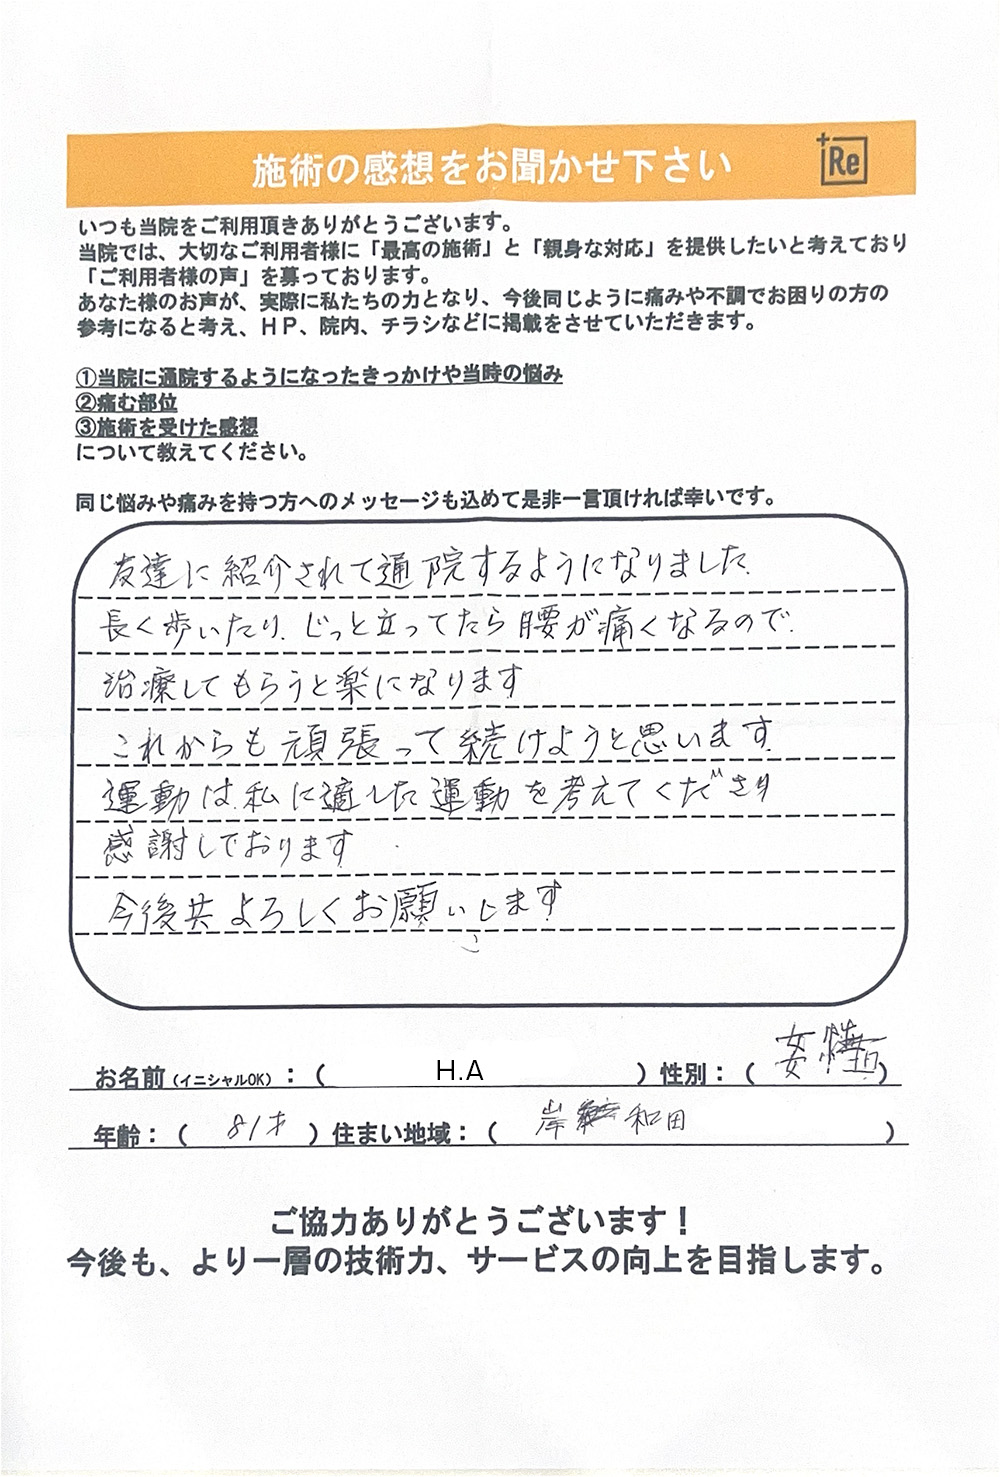 施術の感想をお聞かせ下さい
+Re
いつも当院をご利用頂きありがとうございます。
当院では、大切なご利用者様に「最高の施術」と「親身な対応」を提供したいと考えており
「ご利用者様の声」を募っております。
あなた様のお声が、実際に私たちの力となり、今後同じように痛みや不調でお困りの方の
参考になると考え、HP、院内、チラシなどに掲載をさせていただきます。
①当院に通院するようになったきっかけや当時の悩み
②痛む部位
③施術を受けた感想
について教えてください。
同じ悩みや痛みを持つ方へのメッセージも込めて是非一言頂ければ幸いです。
友達に紹介されて通院するようになりました.
長く歩いたり.じっと立ってたら腰が痛くなるので.
治療してもらうと楽になります
これからも頑張って続けようと思います.
運動は.私に適した運動を考えてくださり
感謝しております
今後共よろしくお願いします
お名前(イニシャルOK):( H.A )性別:( 女 )
年齢:( 81才 )住まい地域:( 岸和田 )
ご協力ありがとうございます!
今後も、より一層の技術力、サービスの向上を目指します。